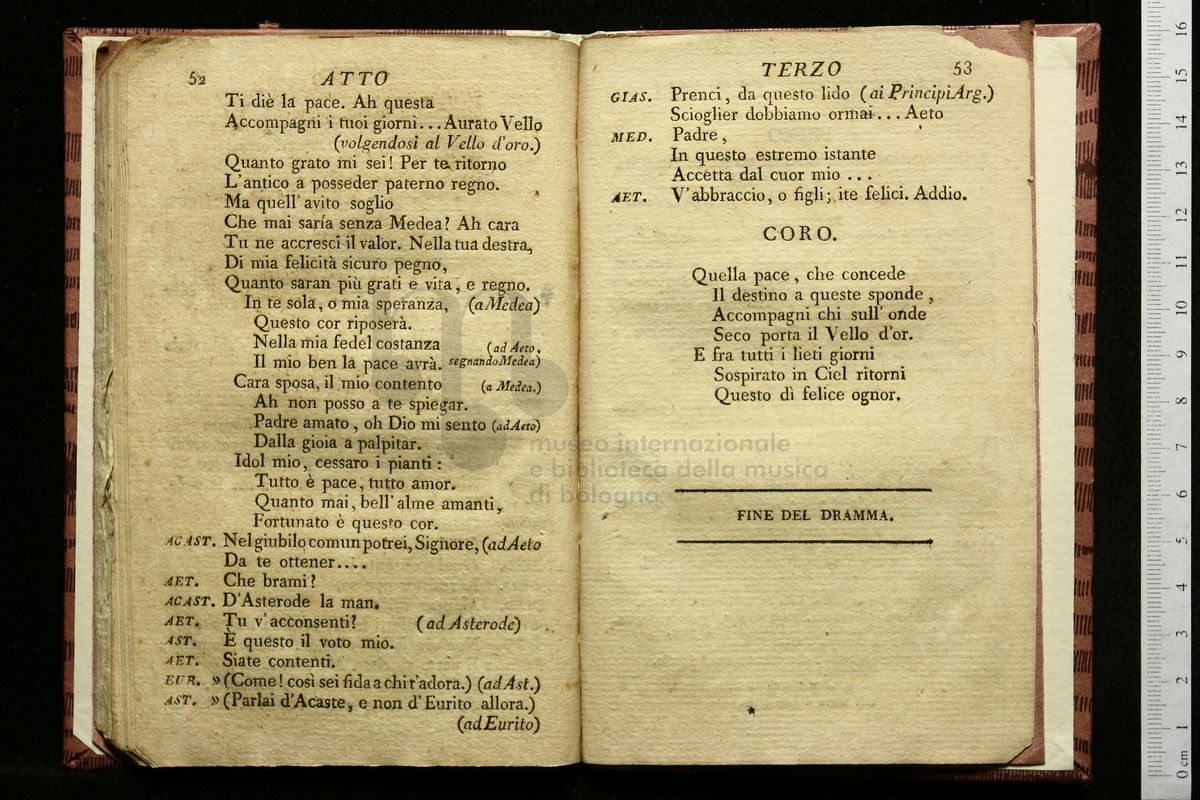 52 ATTO
Ti diè la pace. Ah questa
Accompagni i tuoi giorni... Aurato Vello
(volgendosi al Vello d'oro.)
Quanto grato mi sei! Per te ritorno
L'antico a posseder paterno regno.
Ma quell' avito soglio
Che mai saría senza Medea? Ah cara
Tu ne accresci il valor. Nella tua destra,
Di mia felicità sicuro pegno,
Quanto saran più grati e vita, e regno.
In te sola, o mia speranza, (a Medea)
Questo cor riposerà.
Nella mia fedel costanza (ad Aeto,
Il mio ben la pace avrà. segnando Medea)
Cara sposa, il mio contento (a Medea.)
Ah non posso a te spiegar.
Padre amato, oh Dio mi sento (ad Aeto)
Dalla gioia a palpitar.
Idol mio, cessaro i pianti:
Tutto è pace, tutto amor.
Quanto mai, bell' alme amanti,
Fortunato è questo cor.
ACAST. Nel giubilo comun potrei, Signore, (ad Aeto
Da te ottener....
AET. Che brami?
ACAST. D'Asterode la man.
AET. Tu v' acconsenti? (ad Asterode)
AST. È questo il voto mio.
AET. Siate contenti.
EUR. » (Come! così sei fida a chi t'adora.) (ad Ast.)
AST. » (Parlai d'Acaste, e non d' Eurito allora.)
(ad Eurito)
TERZO 53
GIAS. Prenci, da questo lido (ai Principi Arg.)
Scioglier dobbiamo ormai... Aeto
MED. Padre,
In questo estremo istante
Accetta dal cuor mio ...
AET. V' abbraccio, o figli; ite felici. Addio.
CORO.
Quella pace, che concede
Il destino a queste sponde,
Accompagni chi sull' onde
Seco porta il Vello d'or.
E fra tutti i lieti giorni
Sospirato in Ciel ritorni
Questo dì felice ognor.
FINE DEL DRAMMA.
museo internazionale
e biblioteca della musica
di bologna
0 cm 1 2 3 4 5 6 7 8 9 10 11 12 13 14 15 16